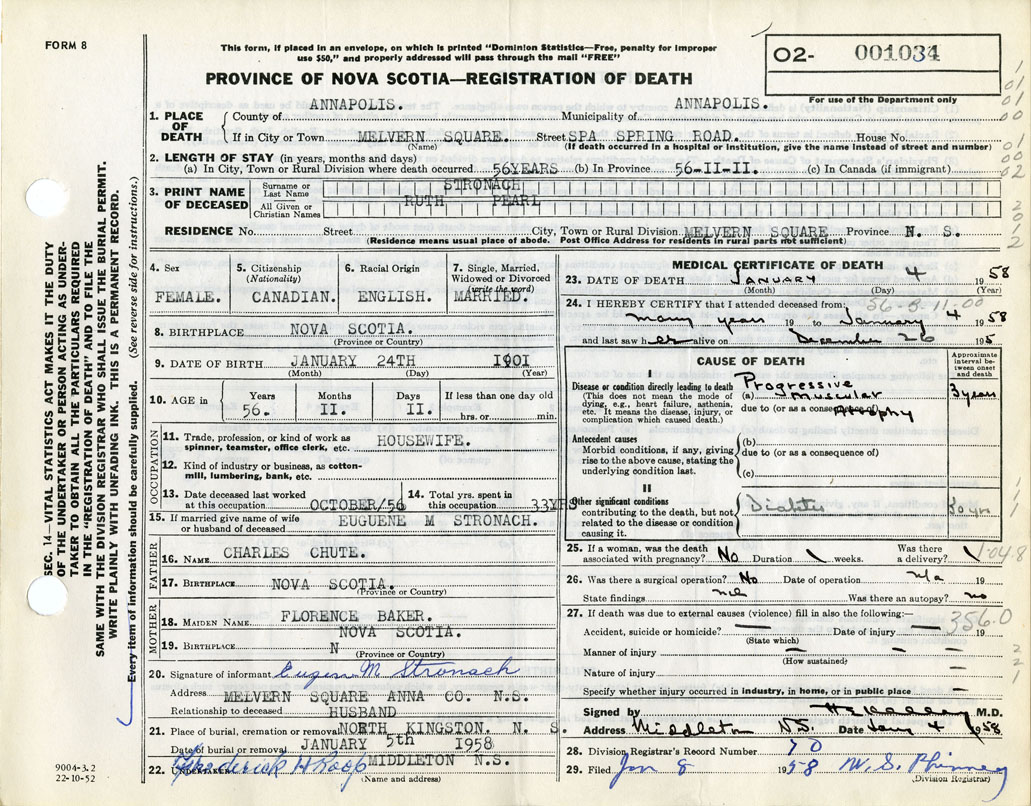 FORM 8
This form, if placed in an envelope, on which is printed "Dominion Statistics—Free, penalty for improper
use $50," and properly addressed will pass through the mail "FREE"
PROVINCE OF NOVA SCOTIA—REGISTRATION OF DEATH
O2- 001034
For use of the Department only
1. PLACE OF DEATH
County of ANNAPOLIS. Municipality of ANNAPOLIS.
If in City or Town MELVERN SQUARE. Street SPA SPRING ROAD. House No.
(Name) (If death occurred in a hospital or institution, give the name instead of street and number)
2. LENGTH OF STAY (in years, months and days)
(a) In City, Town or Rural Division where death occurred. 56YEARS (b) In Province 56-II-II. (c) In Canada (if immigrant)
3. PRINT NAME OF DECEASED
Surname or Last Name STRONACH
All Given or Christian Names RUTH PEARL
RESIDENCE No. Street City, Town or Rural Division MELVERN SQUARE Province N. S.
(Residence means usual place of abode. Post Office Address for residents in rural parts not sufficient)
4. Sex FEMALE.
5. Citizenship (Nationality) CANADIAN.
6. Racial Origin ENGLISH.
7. Single, Married, Widowed or Divorced (write the word) MARRIED.
8. BIRTHPLACE NOVA SCOTIA.
(Province or Country)
9. DATE OF BIRTH JANUARY 24TH 1901
(Month) (Day) (Year)
10. AGE in Years 56. Months II. Days II. If less than one day old
hrs. or min.
OCCUPATION
11. Trade, profession, or kind of work as spinner, teamster, office clerk, etc. HOUSEWIFE.
12. Kind of industry or business, as cotton-mill, lumbering, bank, etc.
13. Date deceased last worked at this occupation OCTOBER/56 14. Total yrs. spent in this occupation 33YRS
15. If married give name of wife or husband of deceased EUGUENE M STRONACH.
FATHER
16. NAME CHARLES CHUTE.
17. BIRTHPLACE NOVA SCOTIA.
(Province or Country)
MOTHER
18. MAIDEN NAME FLORENCE BAKER.
19. BIRTHPLACE N NOVA SCOTIA.
(Province or Country)
20. Signature of informant Eugene M. Stronach
Address MELVERN SQUARE ANNA CO. N.S.
Relationship to deceased HUSBAND
21. Place of burial, cremation or removal NORTH KINGSTON. N. S.
Date of burial or removal JANUARY 5th 1958
22. Undertaker Frederick H Roop MIDDLETON N.S.
(Name and address)
MEDICAL CERTIFICATE OF DEATH
23. DATE OF DEATH January 4 1958
(Month) (Day) (Year)
24. I HEREBY CERTIFY that I attended deceased from: 56-3-11-00
many years 19 to January 4 1958
and last saw her alive on December 26 195
CAUSE OF DEATH
Approximate interval between onset and death
I
Disease or condition directly leading to death
(This does not mean the mode of dying, e.g., heart failure, asthenia, etc. It means the disease, injury, or complication which caused death.)
(a) Progressive Muscular Atrophy 3 years
due to (or as a consequence of)
Antecedent causes
Morbid conditions, if any, giving rise to the above cause, stating the underlying condition last.
(b)
due to (or as a consequence of)
(c)
II
Other significant conditions contributing to the death, but not related to the disease or condition causing it.
Diabetes
25. If a woman, was the death associated with pregnancy? No Duration \ weeks. Was there a delivery? \
26. Was there a surgical operation? No Date of operation n/a 19
State findings nil Was there an autopsy? no
27. If death was due to external causes (violence) fill in also the following:— 356.0
Accident, suicide or homicide? — Date of injury — 19
(State which)
Manner of injury — —
(How sustained)
Nature of injury —
Specify whether injury occurred in industry, in home, or in public place —
Signed by M.D.
Address Middleton N.S. Date Jany 4 1958
28. Division Registrar's Record Number 70
29. Filed Jan 8 1958 W. S. Phinney
(Division Registrar)
SEC. 14—VITAL STATISTICS ACT MAKES IT THE DUTY
OF THE UNDERTAKER OR PERSON ACTING AS UNDER-
TAKER TO OBTAIN ALL THE PARTICULARS REQUIRED
IN THE "REGISTRATION OF DEATH" AND TO FILE THE
SAME WITH THE DIVISION REGISTRAR WHO SHALL ISSUE THE BURIAL PERMIT.
WRITE PLAINLY WITH UNFADING INK. THIS IS A PERMANENT RECORD.
Every item of information should be carefully supplied. (See reverse side for instructions.)
9004-3.2
22-10-52